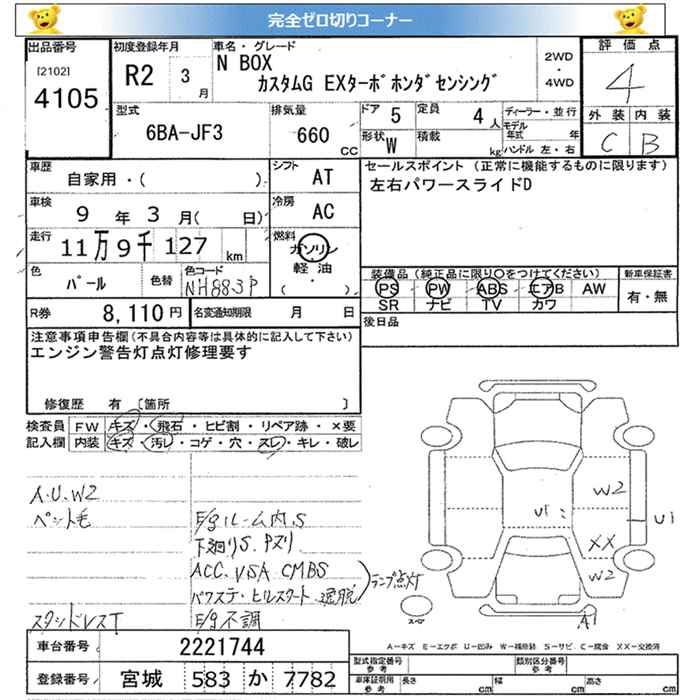 完全ゼロ切りコーナー
出品番号 初度登録年月 車名・グレード 評価点
[2102] 4105
R2 3月
N BOX
カスタムG EXターボホンダセンシング
2WD・4WD
4
外装 内装
C B
型式 6BA-JF3
排気量 660 CC
ドア 5 定員 4人
形状 W 積載 kg
ディーラー・並行
モデル年式 年
ハンドル 左・右
車歴 自家用・( )
シフト AT
車検 9年3月( 日)
冷房 AC
走行 11万9千127 km
燃料 ガソリン
軽油
( )
色 パール 色替 色コード NH883P
セールスポイント (正常に機能するものに限ります)
左右パワースライドD
装備品(純正品に限り○をつけてください) 新車保証書
PS PW ABS エアB AW 有・無
SR ナビ TV カワ
R券 8,110円 名変通知期限 月 日
後日品
注意事項申告欄(不具合内容等は具体的に記入して下さい)
エンジン警告灯点灯修理要す
修復歴 有 〔箇所 〕
検査員記入欄 FW キズ・飛石・ヒビ割・リペア跡・×要
内装 キズ・汚レ・コゲ・穴・スレ・キレ・破レ
A.U.W2
ペット毛
スタッドレスT
E/gルーム内S
下廻りS.Pヌリ
ACC.VSA CMBS
パワステ・ヒルスタート 逸脱
ランプ点灯
E/g不調
W2
U1 U1
XX
W2
スペア
A1
A=キズ E=エクボ U=凹み W=補修跡 S=サビ C=腐食 XX=交換済
車台番号 2221744
登録番号 宮城 583 か 7782
型式指定番号 参考 類別区分番号 参考
車庫証明用 参考 長さ cm 幅 cm 高さ cm